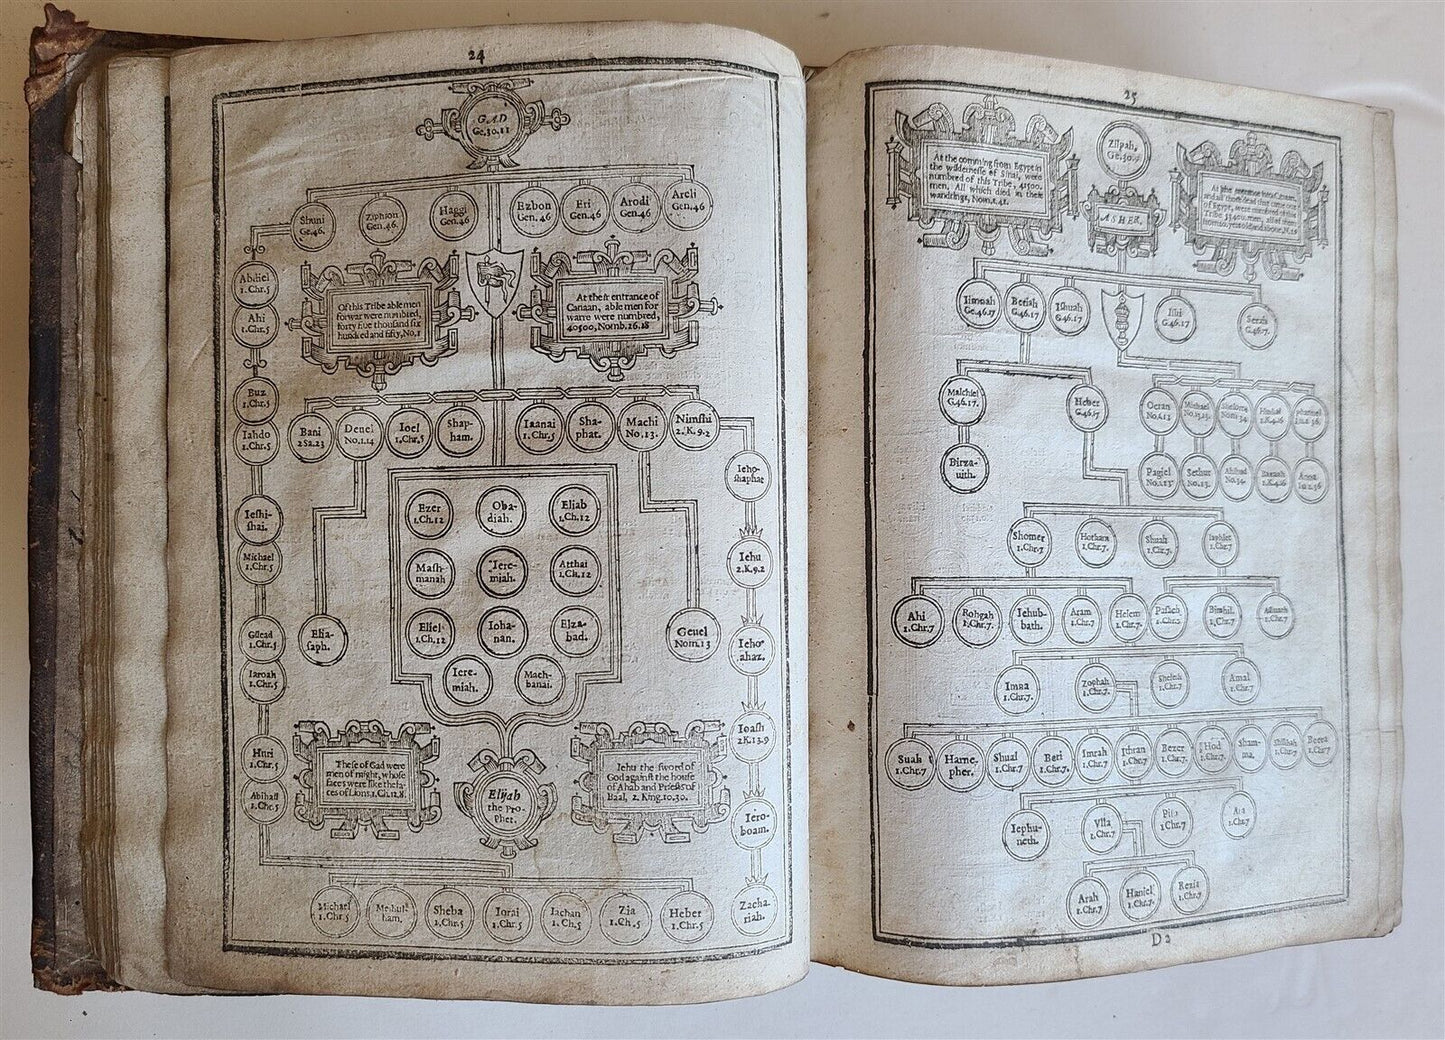 24
GAD
Ge.30.11
Shuni
Ge.46.
Ziphion
Gen.46.
Haggi
Gen.46
Ezbon
Gen.46
Eri
Gen.46
Arodi
Gen.46
Areli
Gen.46
Abdiel
1.Chr.5
Ahi
1.Chr.5
Buz
1.Chr.5
Iahdo
1.Chr.5
Ieshi-
shai.
Michael
1.Chr.5
Gilead
1.Chr.5
Iaroah
1.Chr.5
Huri
1.Chr.5
Abihail
1.Chr.5
Of this Tribe able men
for war were numbred,
forty five thousand six
hundred and fifty, No.1
At their entrance of
Canaan, able men for
warre were numbred,
40500, Nomb.26.18
Bani
2Sa.23
Deuel
No.1.14
Ioel
1.Chr.5
Shap-
ham.
Iaanai
1.Chr.5
Sha-
phat.
Machi
No.13.
Nimshi
2.K.9.2
Elia-
saph.
Ezer
1.Ch.12
Oba-
diah.
Eliab
1.Ch.12
Mash-
manah
Iere-
miah.
Atthai
1.Ch.12
Eliel
1.Ch.12
Ioha-
nan.
Elza-
bad.
Iere-
miah.
Mach-
banai.
Geuel
Nom.13
Ieho-
shaphat
Iehu
2.K.9.2
Ieho-
ahaz.
Ioash
2K.13.9
Iero-
boam.
Zacha-
riah.
These of Gad were
men of might, whose
faces were like the fa-
ces of Lions. 1.Ch.12.8.
Elijah
the Pro-
phet.
Iehu the sword of
God against the house
of Ahab and Priests of
Baal, 2. King.10.30.
Michael
1.Chr.5
Meshul-
ham.
Sheba
1.Chr.5
Iorai
1.Chr.5
Iachan
1.Ch.5
Zia
1.Ch.5
Heber
1.Chr.5
25
At the comming from Egypt in
the wildernesse of Sinai, were
numbred of this Tribe, 41500.
men. All which died in their
wandrings, Nom.1.41.
Zilpah,
Ge.30.
ASHER.
At the entrance into Canaan,
and all those dead that came out
of Egypt, were numbred of this
Tribe 53400. men, all of them
Iimnah
Ge.46.17
Beriah
G.46.17
Ishuah
G.46.17
Ishi
G.46.17
Serah
G.46.17.
Malchiel
G.46.17.
Heber
G.46.17
Birza-
uith.
Ocran
No.1.13
Michael
Pagiel
No.1.13
Sethur
No.13.
Ahihud
No.34.
Baanah
1.K.4.16
Anna
Shomer
1.Chr.7
Hotham
1.Chr.7.
Shuah
1.Chr.7.
Iaphlet
1.Chr.7
Ahi
1.Chr.7
Rohgah
1.Chr.7.
Iehub-
bath.
Aram
1.Chr.7.
Helem
1.Chr.7
Pasach
1.Chr.7
Bimhal
1.Chr.7
1.Chr.7
Imna
1.Chr.7
Zophah
1.Chr.7.
Shelesh
1.Chr.7
Amal
1.Chr.7
Suah
1.Chr.7
Harne-
pher.
Shual
1.Chr.7
Beri
1.Chr.7
Imrah
1.Chr.7
Ithran
1.Chr.7
Bezer
1.Chr.7
Hod
1.Chr.7
Sham-
ma.
Shilshah
1.Chr.7
Beera
1.Chr.7
Iephu-
neth.
Vlla
1.Chr.7
1.Chr.7
Ara
1.Chr.7
Arah
1.Chr.7
Haniel
1.Chr.7.
Rezia
1.Chr.7
D2